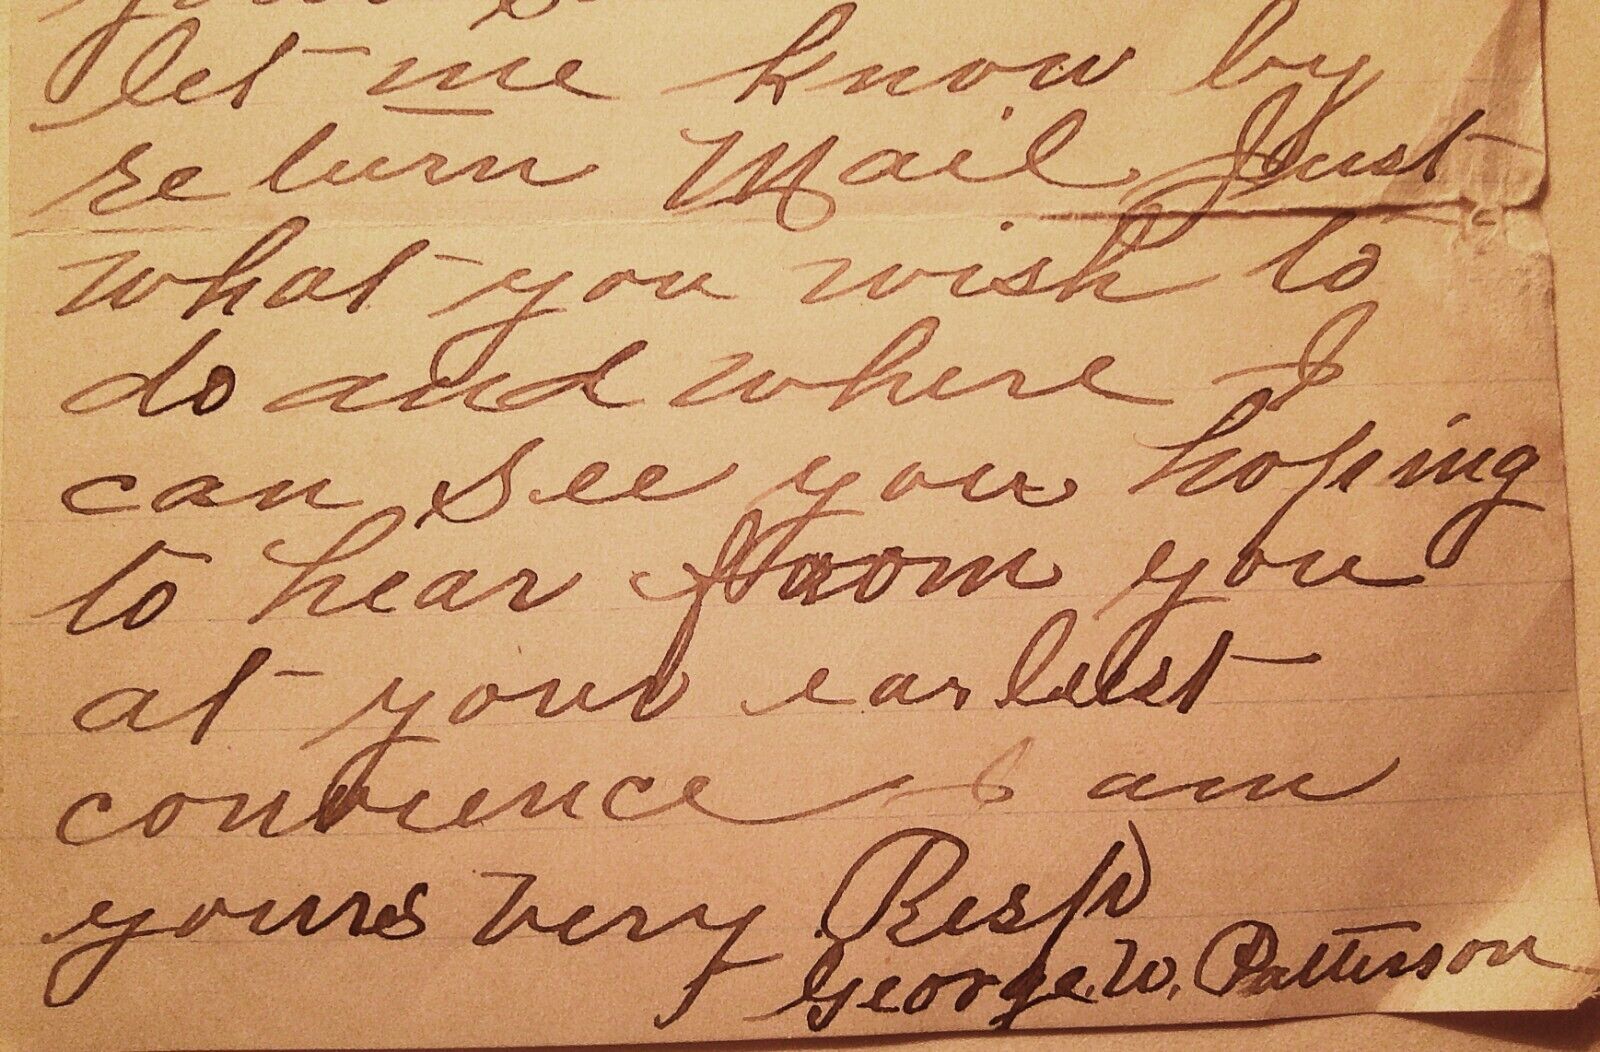 let me know by
return Mail Just
what you wish to
do and where I
can see you hoping
to hear from you
at your earlest
convience I am
yours very Resp
George. W. Patterson